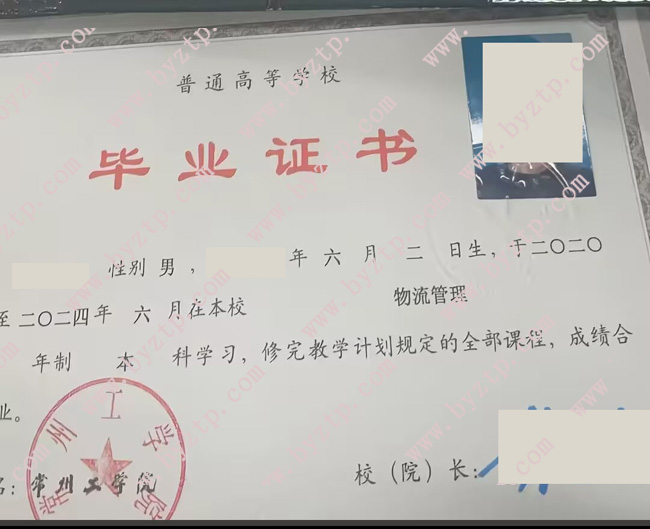 普通高等学校
毕业证书
性别 男， 年 六 月 二 日生，于二〇二〇
至 二〇二四年 六 月在本校 物流管理
年制 本 科学习，修完教学计划规定的全部课程，成绩合
业。
名：常州工学院 校（院）长：
常州工学院
www.byztp.com